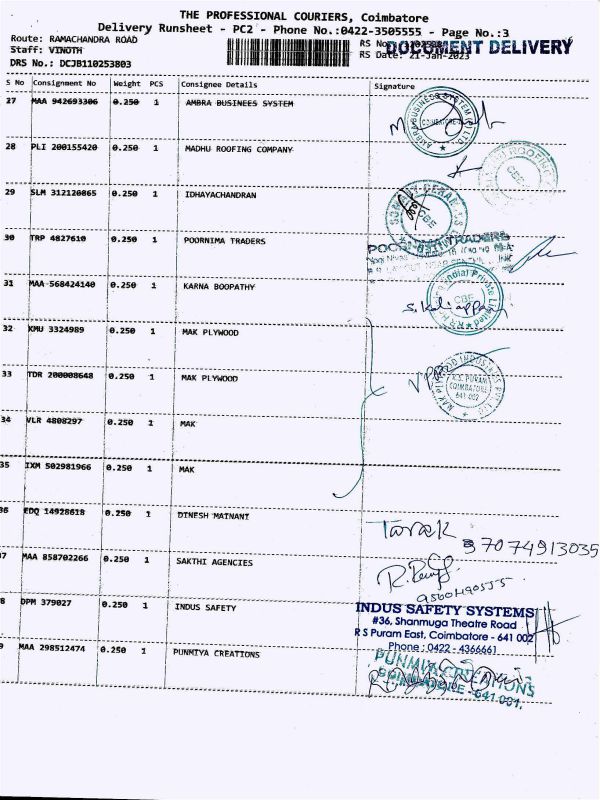 THE PROFESSIONAL COURIERS, Coimbatore
Delivery Runsheet - PC2 - Phone No.:0422-3505555 - Page No.:3
Route: RAMACHANDRA ROAD
Staff: VINOTH
DRS No.: DCJB110253803
RS No
DOCUMENT DELIVERY
RS Date: 21-Jan-2023
S No Consignment No Weight PCS Consignee Details Signature
27 MAA 942693306 0.250 1 AMBRA BUSINEES SYSTEM
28 PLI 200155420 0.250 1 MADHU ROOFING COMPANY
29 SLM 312120865 0.250 1 IDHAYACHANDRAN
30 TRP 4827610 0.250 1 POORNIMA TRADERS
31 MAA 568424140 0.250 1 KARNA BOOPATHY
S. Kaliappan
32 KMU 3324989 0.250 1 MAK PLYWOOD
33 TDR 200008648 0.250 1 MAK PLYWOOD
R.S. PURAM
COIMBATORE
641 002
34 VLR 4808297 0.250 1 MAK
35 IXM 502981966 0.250 1 MAK
36 EDQ 14928618 0.250 1 DINESH MAINANI
Tarak
97074913035
7 MAA 858702266 0.250 1 SAKTHI AGENCIES
8 DPM 379027 0.250 1 INDUS SAFETY
INDUS SAFETY SYSTEMS
#36, Shanmuga Theatre Road
R S Puram East, Coimbatore - 641 002
Phone : 0422 - 4366661
9 MAA 298512474 0.250 1 PUNMIYA CREATIONS
PUNMIA CREATIONS
COIMBATORE - 641 001.